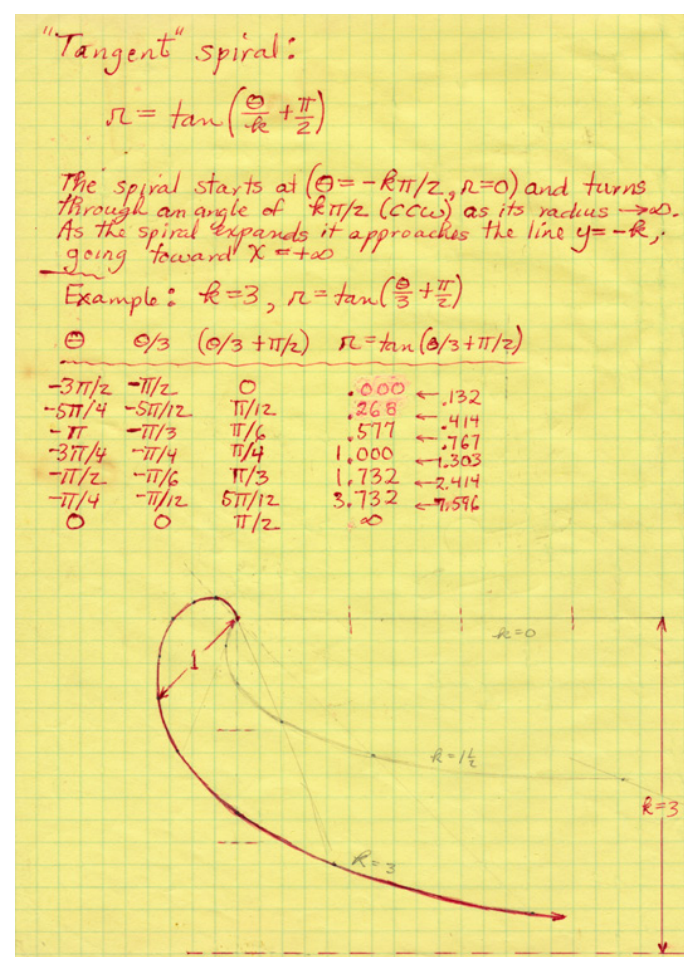 "Tangent" spiral:
r = tan(θ/k + π/2)
The spiral starts at (θ = -kπ/2, r=0) and turns
through an angle of kπ/2 (ccw) as its radius →∞.
As the spiral expands it approaches the line y = -k,
going toward x = +∞
Example: k=3, r = tan(θ/3 + π/2)
θ θ/3 (θ/3 + π/2) r = tan(θ/3 + π/2)
-3π/2 -π/2 0 .000 ← .132
-5π/4 -5π/12 π/12 .268 ← .414
-π -π/3 π/6 .577 ← .767
-3π/4 -π/4 π/4 1.000 ← 1.303
-π/2 -π/6 π/3 1.732 ← 2.414
-π/4 -π/12 5π/12 3.732 ← 7.596
0 0 π/2 ∞
k=0
1
k=1½
k=3
k=3